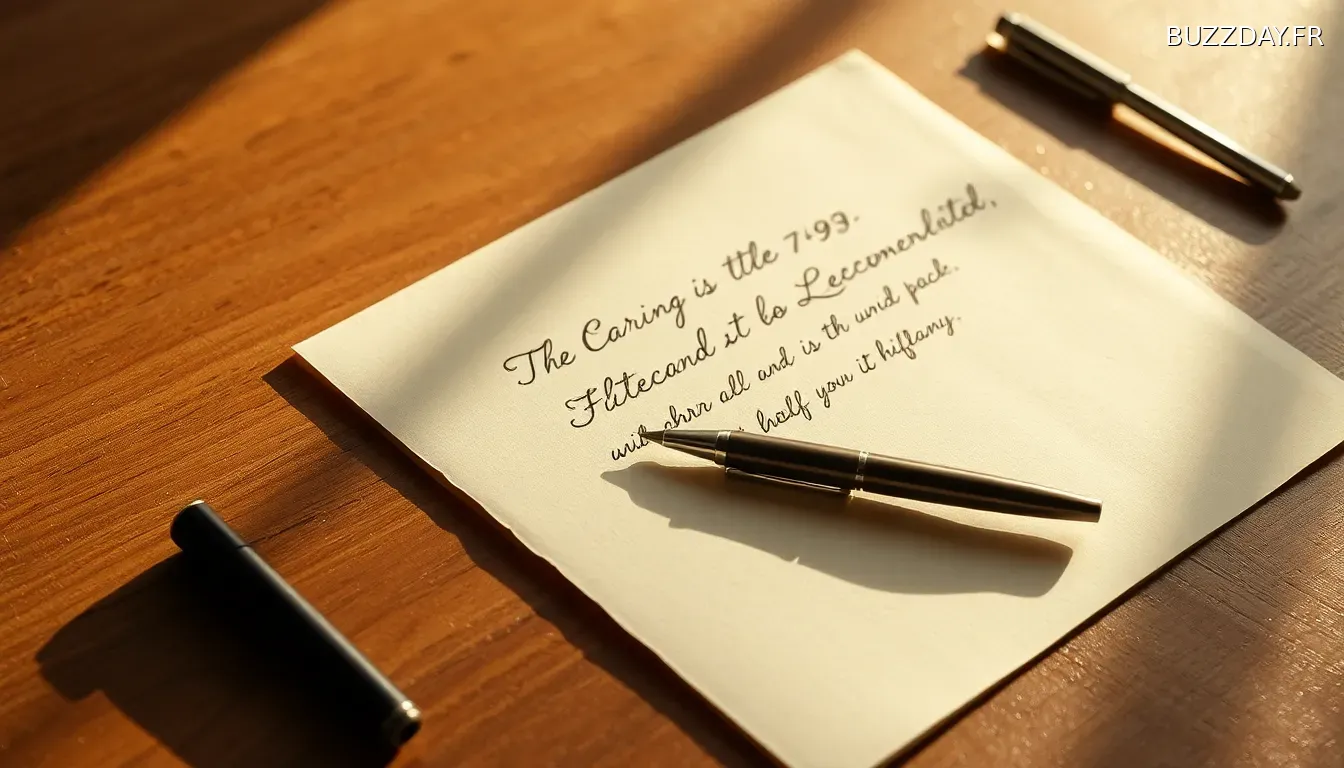 BUZZDAY.FR
The Caring is ttle 7193.
Fltecand it lo Leccomenlàtd,
all and is th wnid pack.
half your it hiflany.